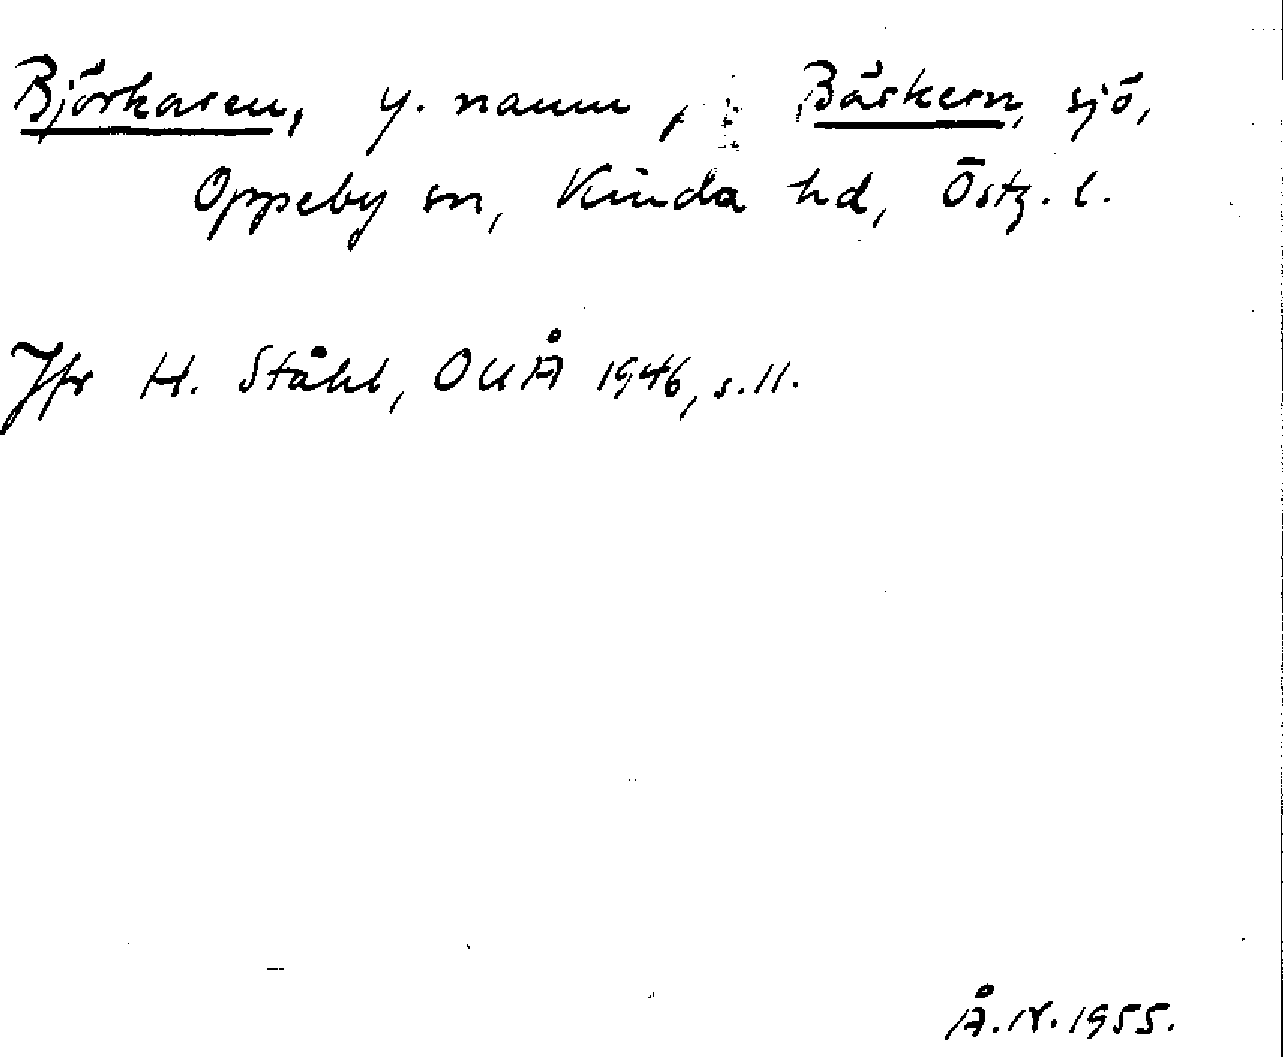 Björkaren, y. namn, Bäskern, sjö,
Oppeby sn, Kinda hd, Östg. l.
Jfr H. Ståhl, OUÅ 1946, s. 11.
Å. N. 1955.